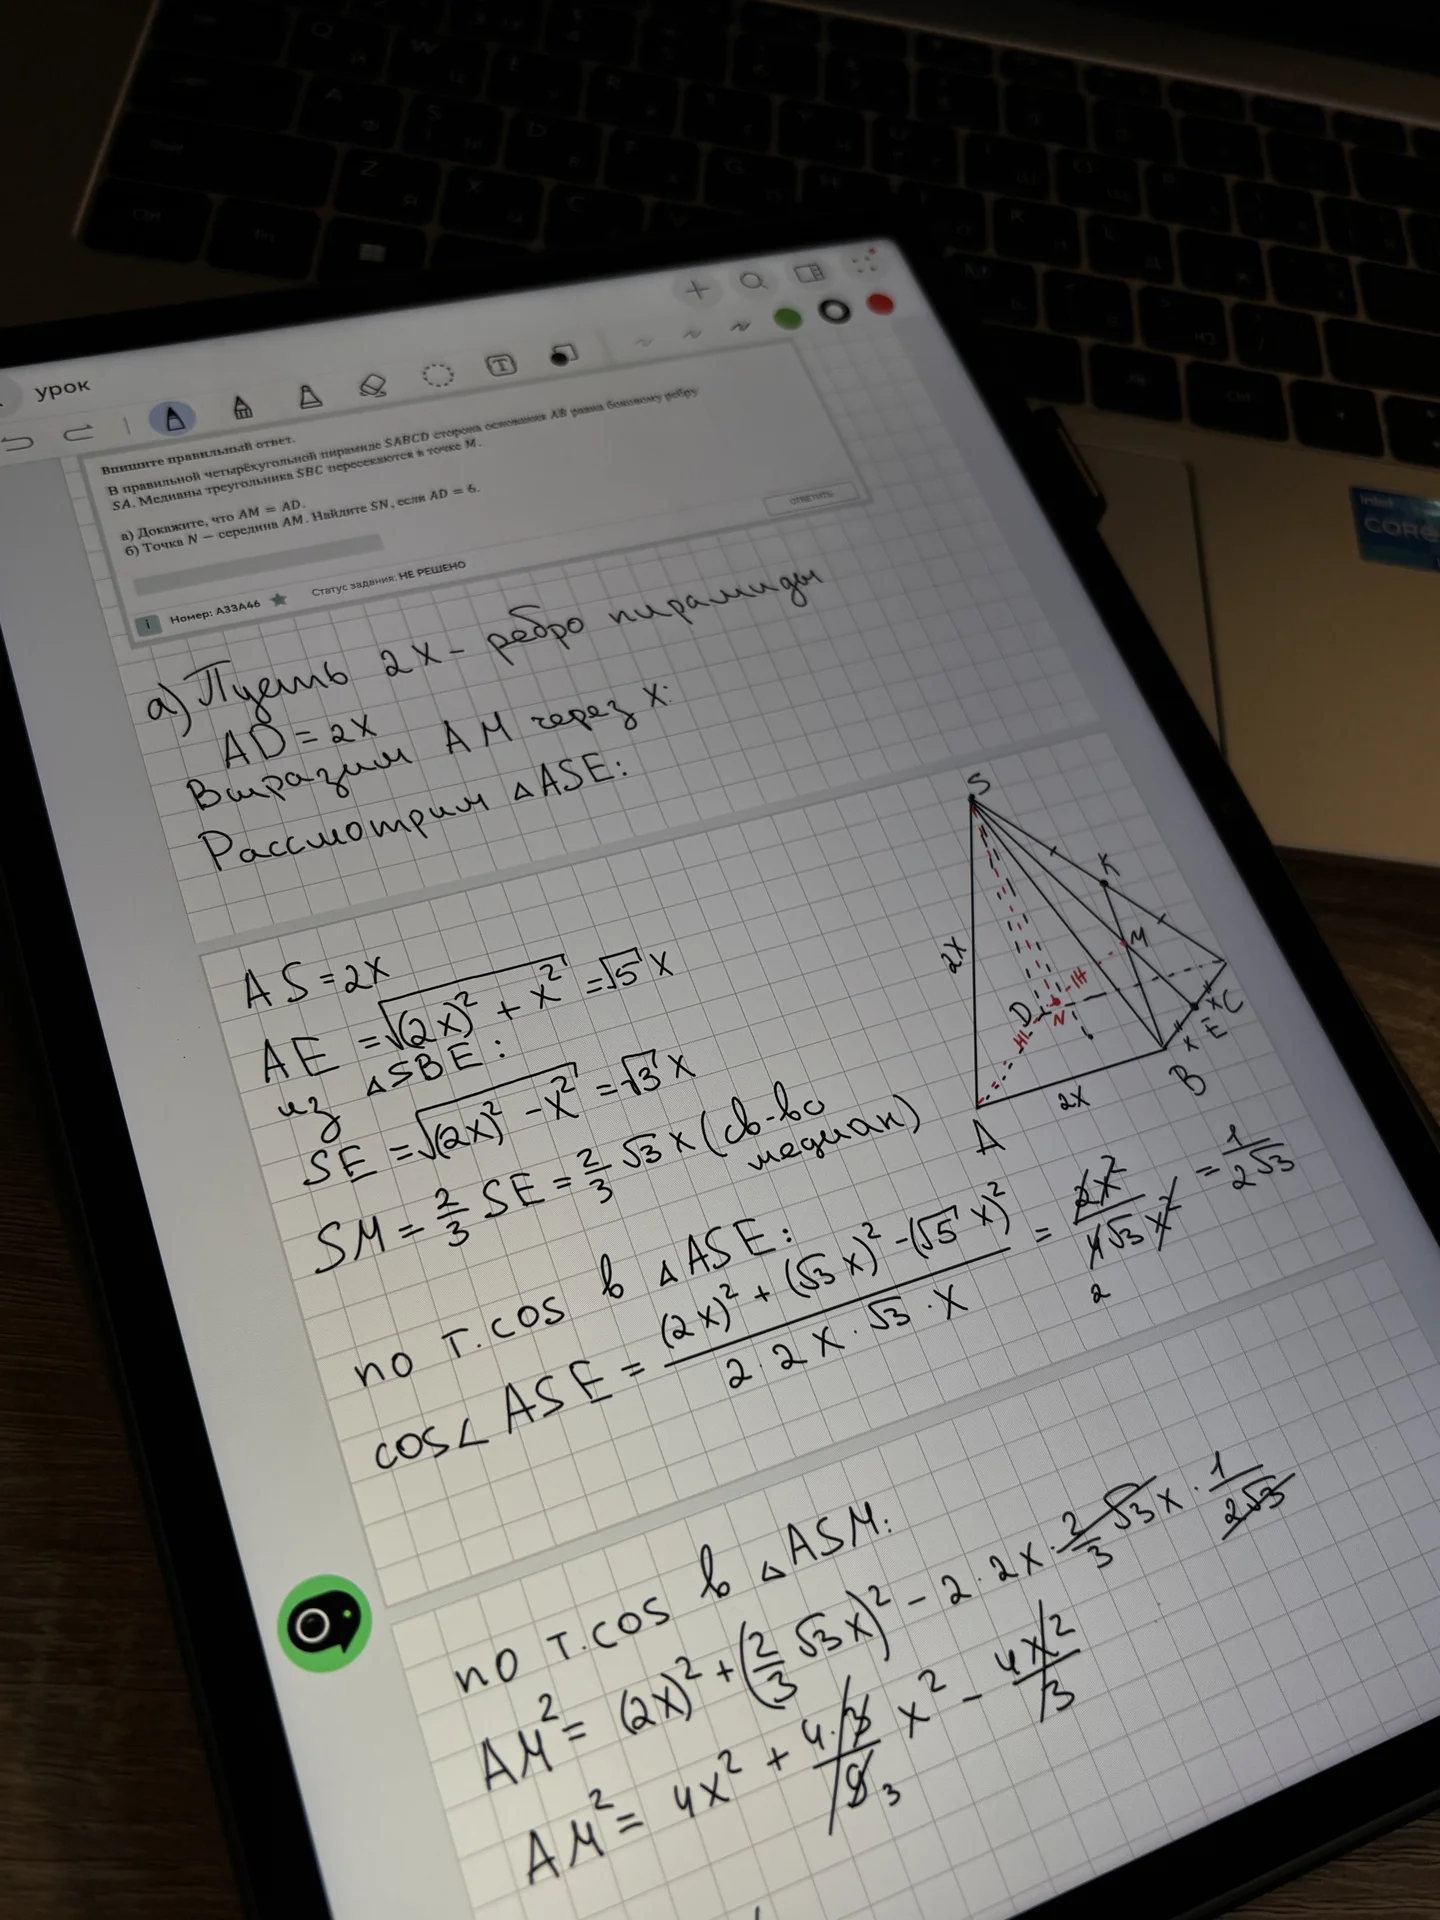 урок
Впишите правильный ответ.
В правильной четырёхугольной пирамиде SABCD сторона основания AB равна боковому ребру
SA. Медианы треугольника SBC пересекаются в точке M.
а) Докажите, что AM = AD.
б) Точка N — середина AM. Найдите SN, если AD = 6.
ОТВЕТИТЬ
i Номер: A33A46 ★ Статус задания: НЕ РЕШЕНО
а) Пусть 2x - ребро пирамиды
AD = 2x
Выразим AM через x:
Рассмотрим △ASE:
AS = 2x
AE = √((2x)² + x²) = √5 x
из △SBE:
SE = √((2x)² - x²) = √3 x
SM = 2/3 SE = 2/3 √3 x (св-во
медиан)
по т.cos в △ASE:
cos∠ASE = ((2x)² + (√3 x)² - (√5 x)²)/(2·2x·√3·x) = 2x²/(4√3 x²) = 1/(2√3)
2
по т.cos в △ASM:
AM² = (2x)² + (2/3 √3 x)² - 2·2x·2/3 √3 x · 1/(2√3)
AM² = 4x² + (4·3)/9 x² - 4x²/3
3
S
K
M
2x
D
N
H
H
x
C
E
x
B
2x
A
intel
CORE
Q
W
E
R
A
S
D
Z
X
C
Ctrl
Fn